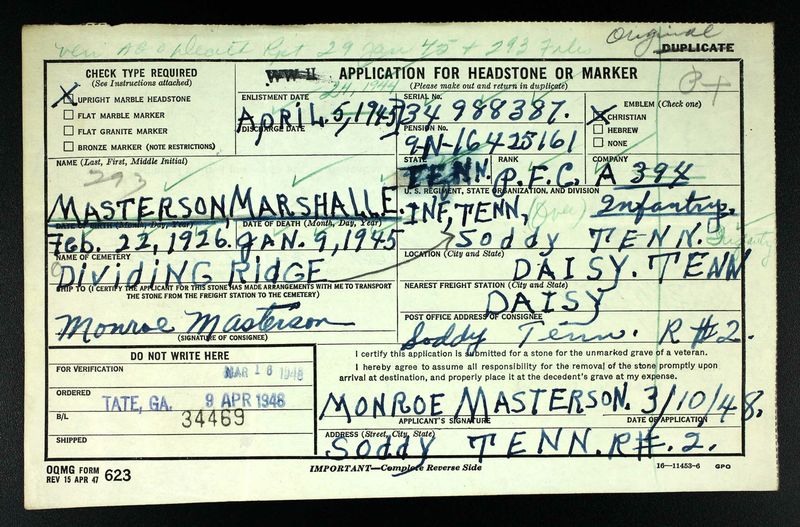 Veri AGO Death Rpt 29 Jan 45 + 293 Files
Original
DUPLICATE
CHECK TYPE REQUIRED
(See Instructions attached)
X UPRIGHT MARBLE HEADSTONE
FLAT MARBLE MARKER
FLAT GRANITE MARKER
BRONZE MARKER (NOTE RESTRICTIONS)
WW II APPLICATION FOR HEADSTONE OR MARKER
(Please make out and return in duplicate)
ENLISTMENT DATE
24, 1944
APRIL 5, 1945
DISCHARGE DATE
SERIAL No.
34 988387.
PENSION No.
9-N-16425161
EMBLEM (Check one)
X CHRISTIAN
HEBREW
NONE
NAME (Last, First, Middle Initial)
293
MASTERSON, MARSHALL E.
STATE
TENN.
RANK
P.F.C.
COMPANY
A 394
U. S. REGIMENT, STATE ORGANIZATION, AND DIVISION
INF, TENN, (Over) Infantry.
DATE OF BIRTH (Month, Day, Year)
Feb. 22, 1926.
DATE OF DEATH (Month, Day, Year)
JAN. 9, 1945
Soddy TENN.
NAME OF CEMETERY
DIVIDING RIDGE
LOCATION (City and State)
DAISY. TENN
SHIP TO (I CERTIFY THE APPLICANT FOR THIS STONE HAS MADE ARRANGEMENTS WITH ME TO TRANSPORT
THE STONE FROM THE FREIGHT STATION TO THE CEMETERY)
NEAREST FREIGHT STATION (City and State)
DAISY
Monroe Masterson
(SIGNATURE OF CONSIGNEE)
POST OFFICE ADDRESS OF CONSIGNEE
Soddy Tenn. R #2.
DO NOT WRITE HERE
FOR VERIFICATION
MAR 18 1948
ORDERED
TATE, GA. 9 APR 1948
B/L
34469
SHIPPED
I certify this application is submitted for a stone for the unmarked grave of a veteran.
I hereby agree to assume all responsibility for the removal of the stone promptly upon
arrival at destination, and properly place it at the decedent's grave at my expense.
MONROE MASTERSON. 3/10/48.
APPLICANT'S SIGNATURE
DATE OF APPLICATION
ADDRESS (Street, City, State)
Soddy TENN. R#. 2.
OQMG FORM
REV 15 APR 47 623
IMPORTANT—Complete Reverse Side
16—11453-6 GPO